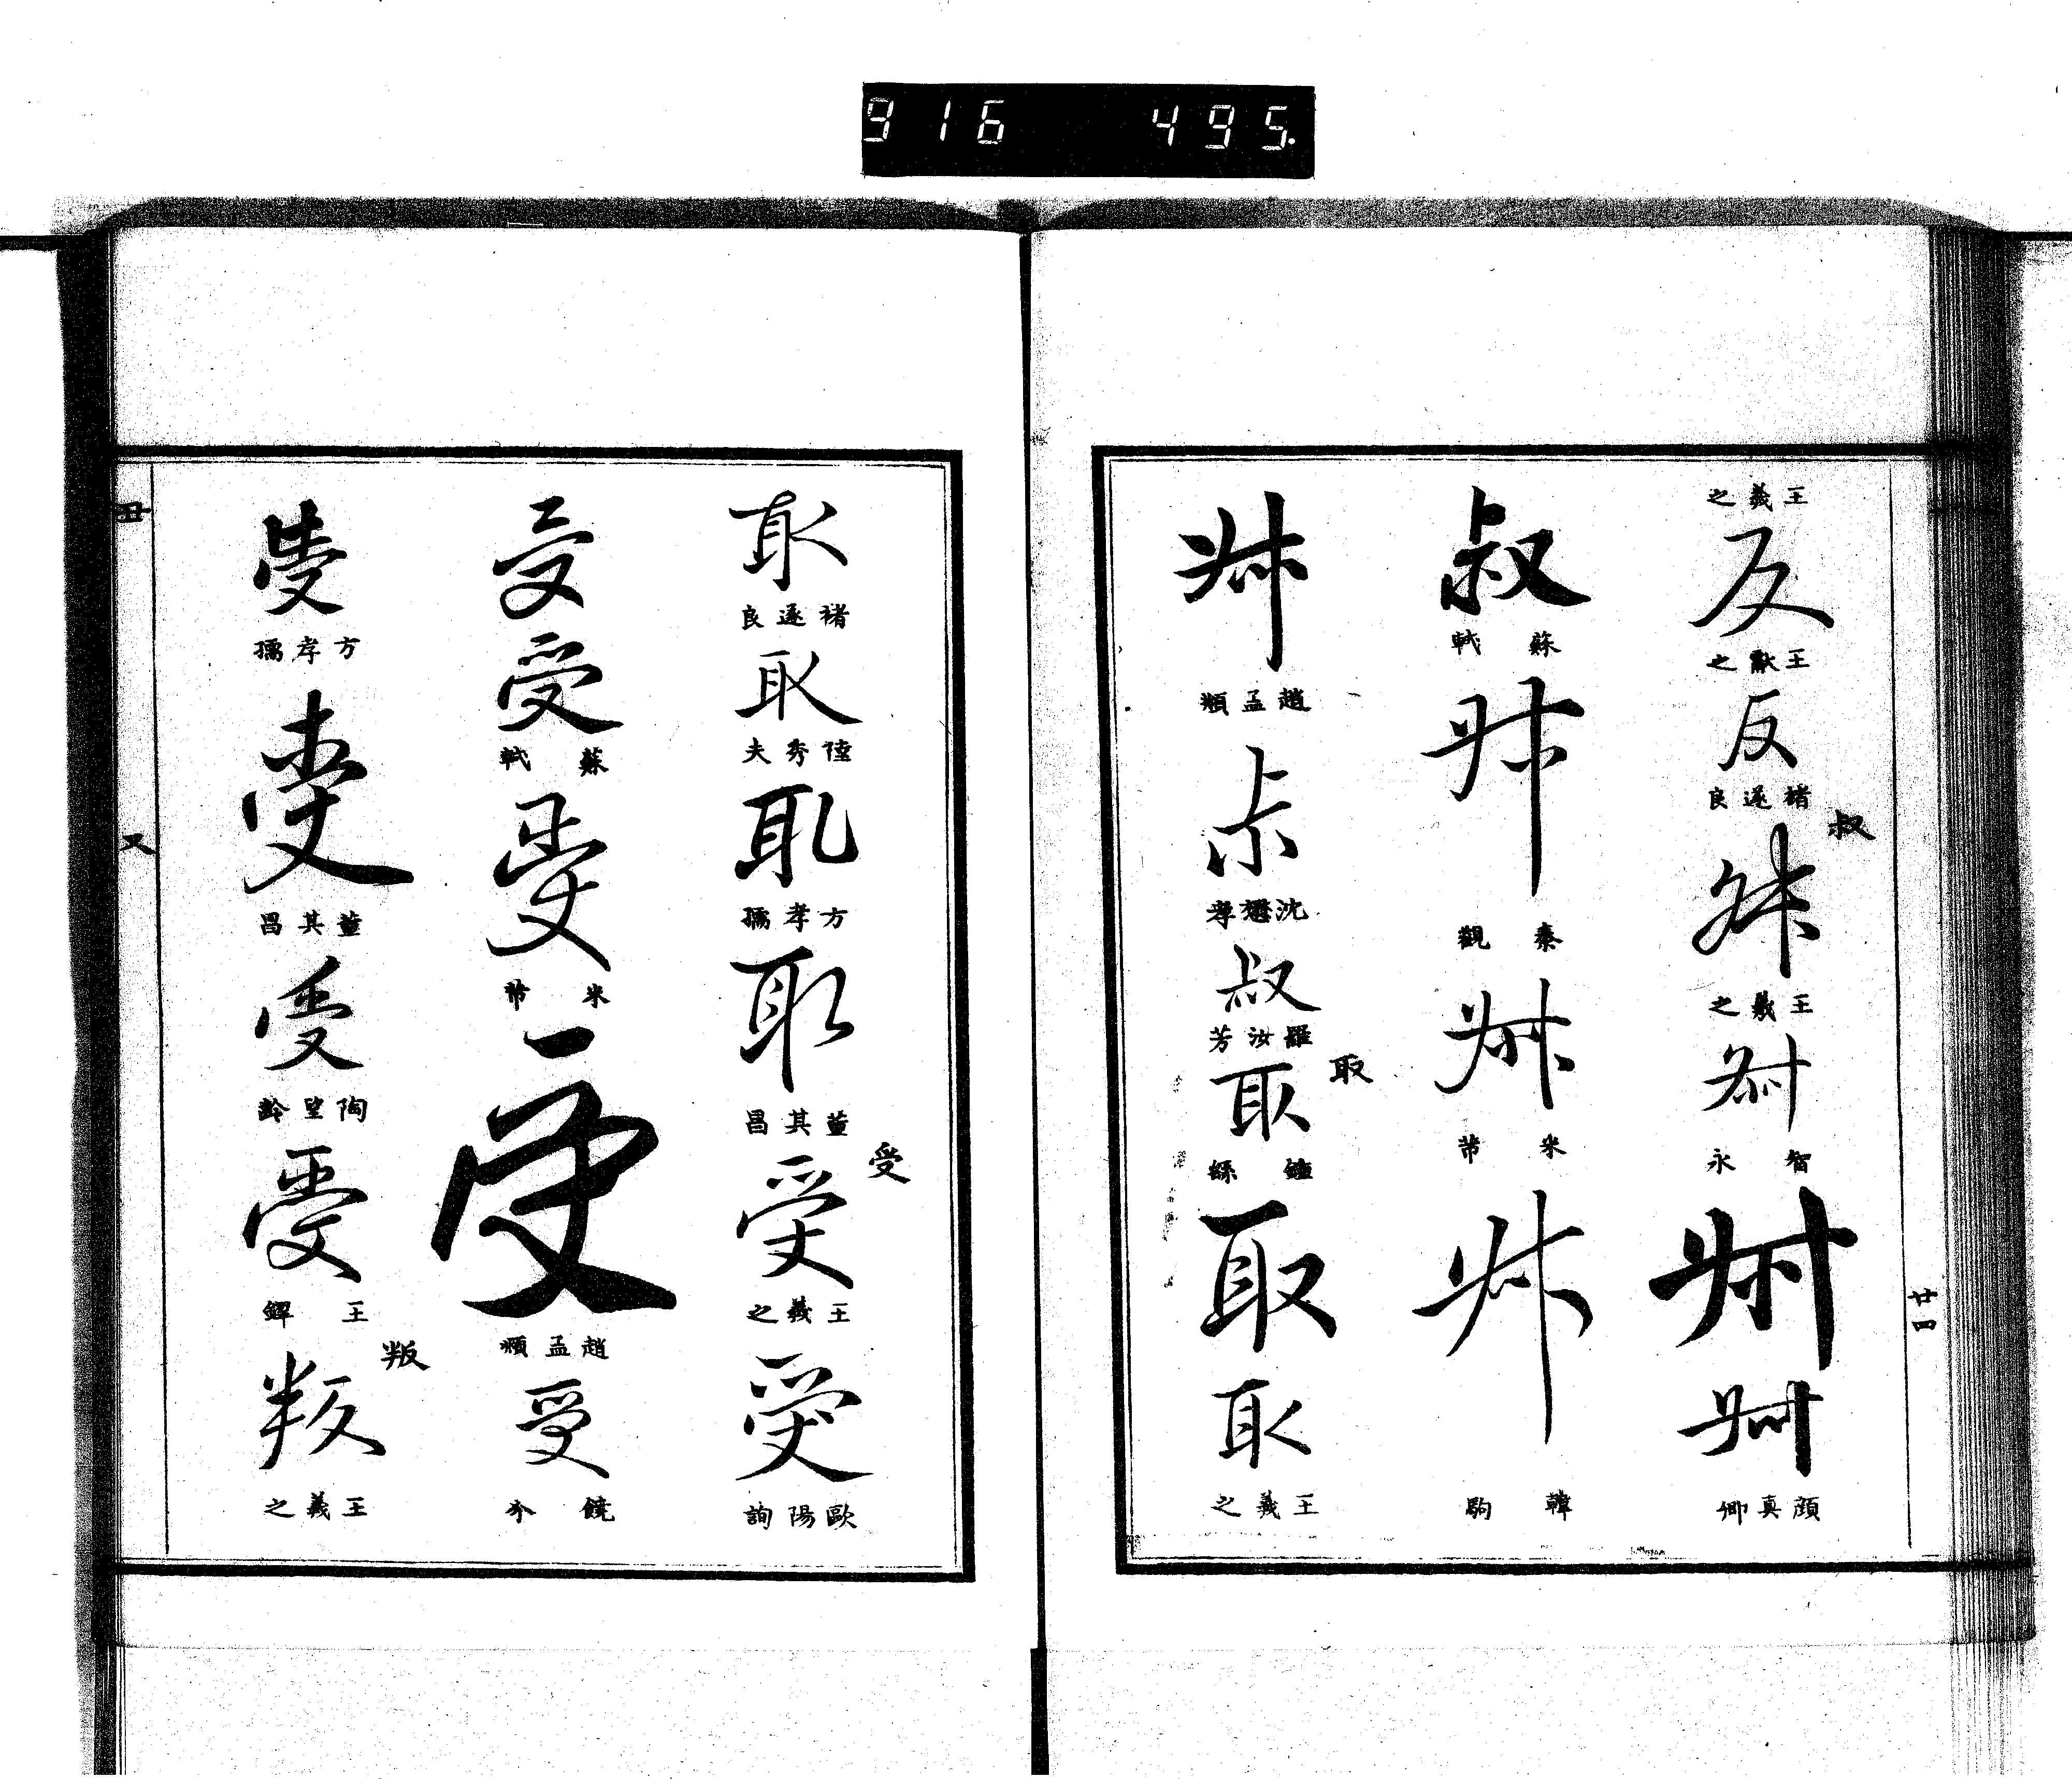 916 495.
王羲之
反
王獻之
反
褚遂良
叔
叔
王羲之
叔
智永
叔
叔
顔真卿
廿四
叔
蘇軾
叔
秦觀
叔
米芾
叔
韓駒
叔
趙孟頫
叔
沈懋孝
叔
羅汝芳
取
取
鍾繇
取
取
王羲之
取
褚遂良
取
陸秀夫
取
方孝孺
取
董其昌
受
受
王羲之
受
歐陽詢
受
受
蘇軾
受
米芾
受
趙孟頫
受
饒介
受
方孝孺
受
董其昌
受
陶望齡
受
王鐸
叛
叛
王羲之
丑
又